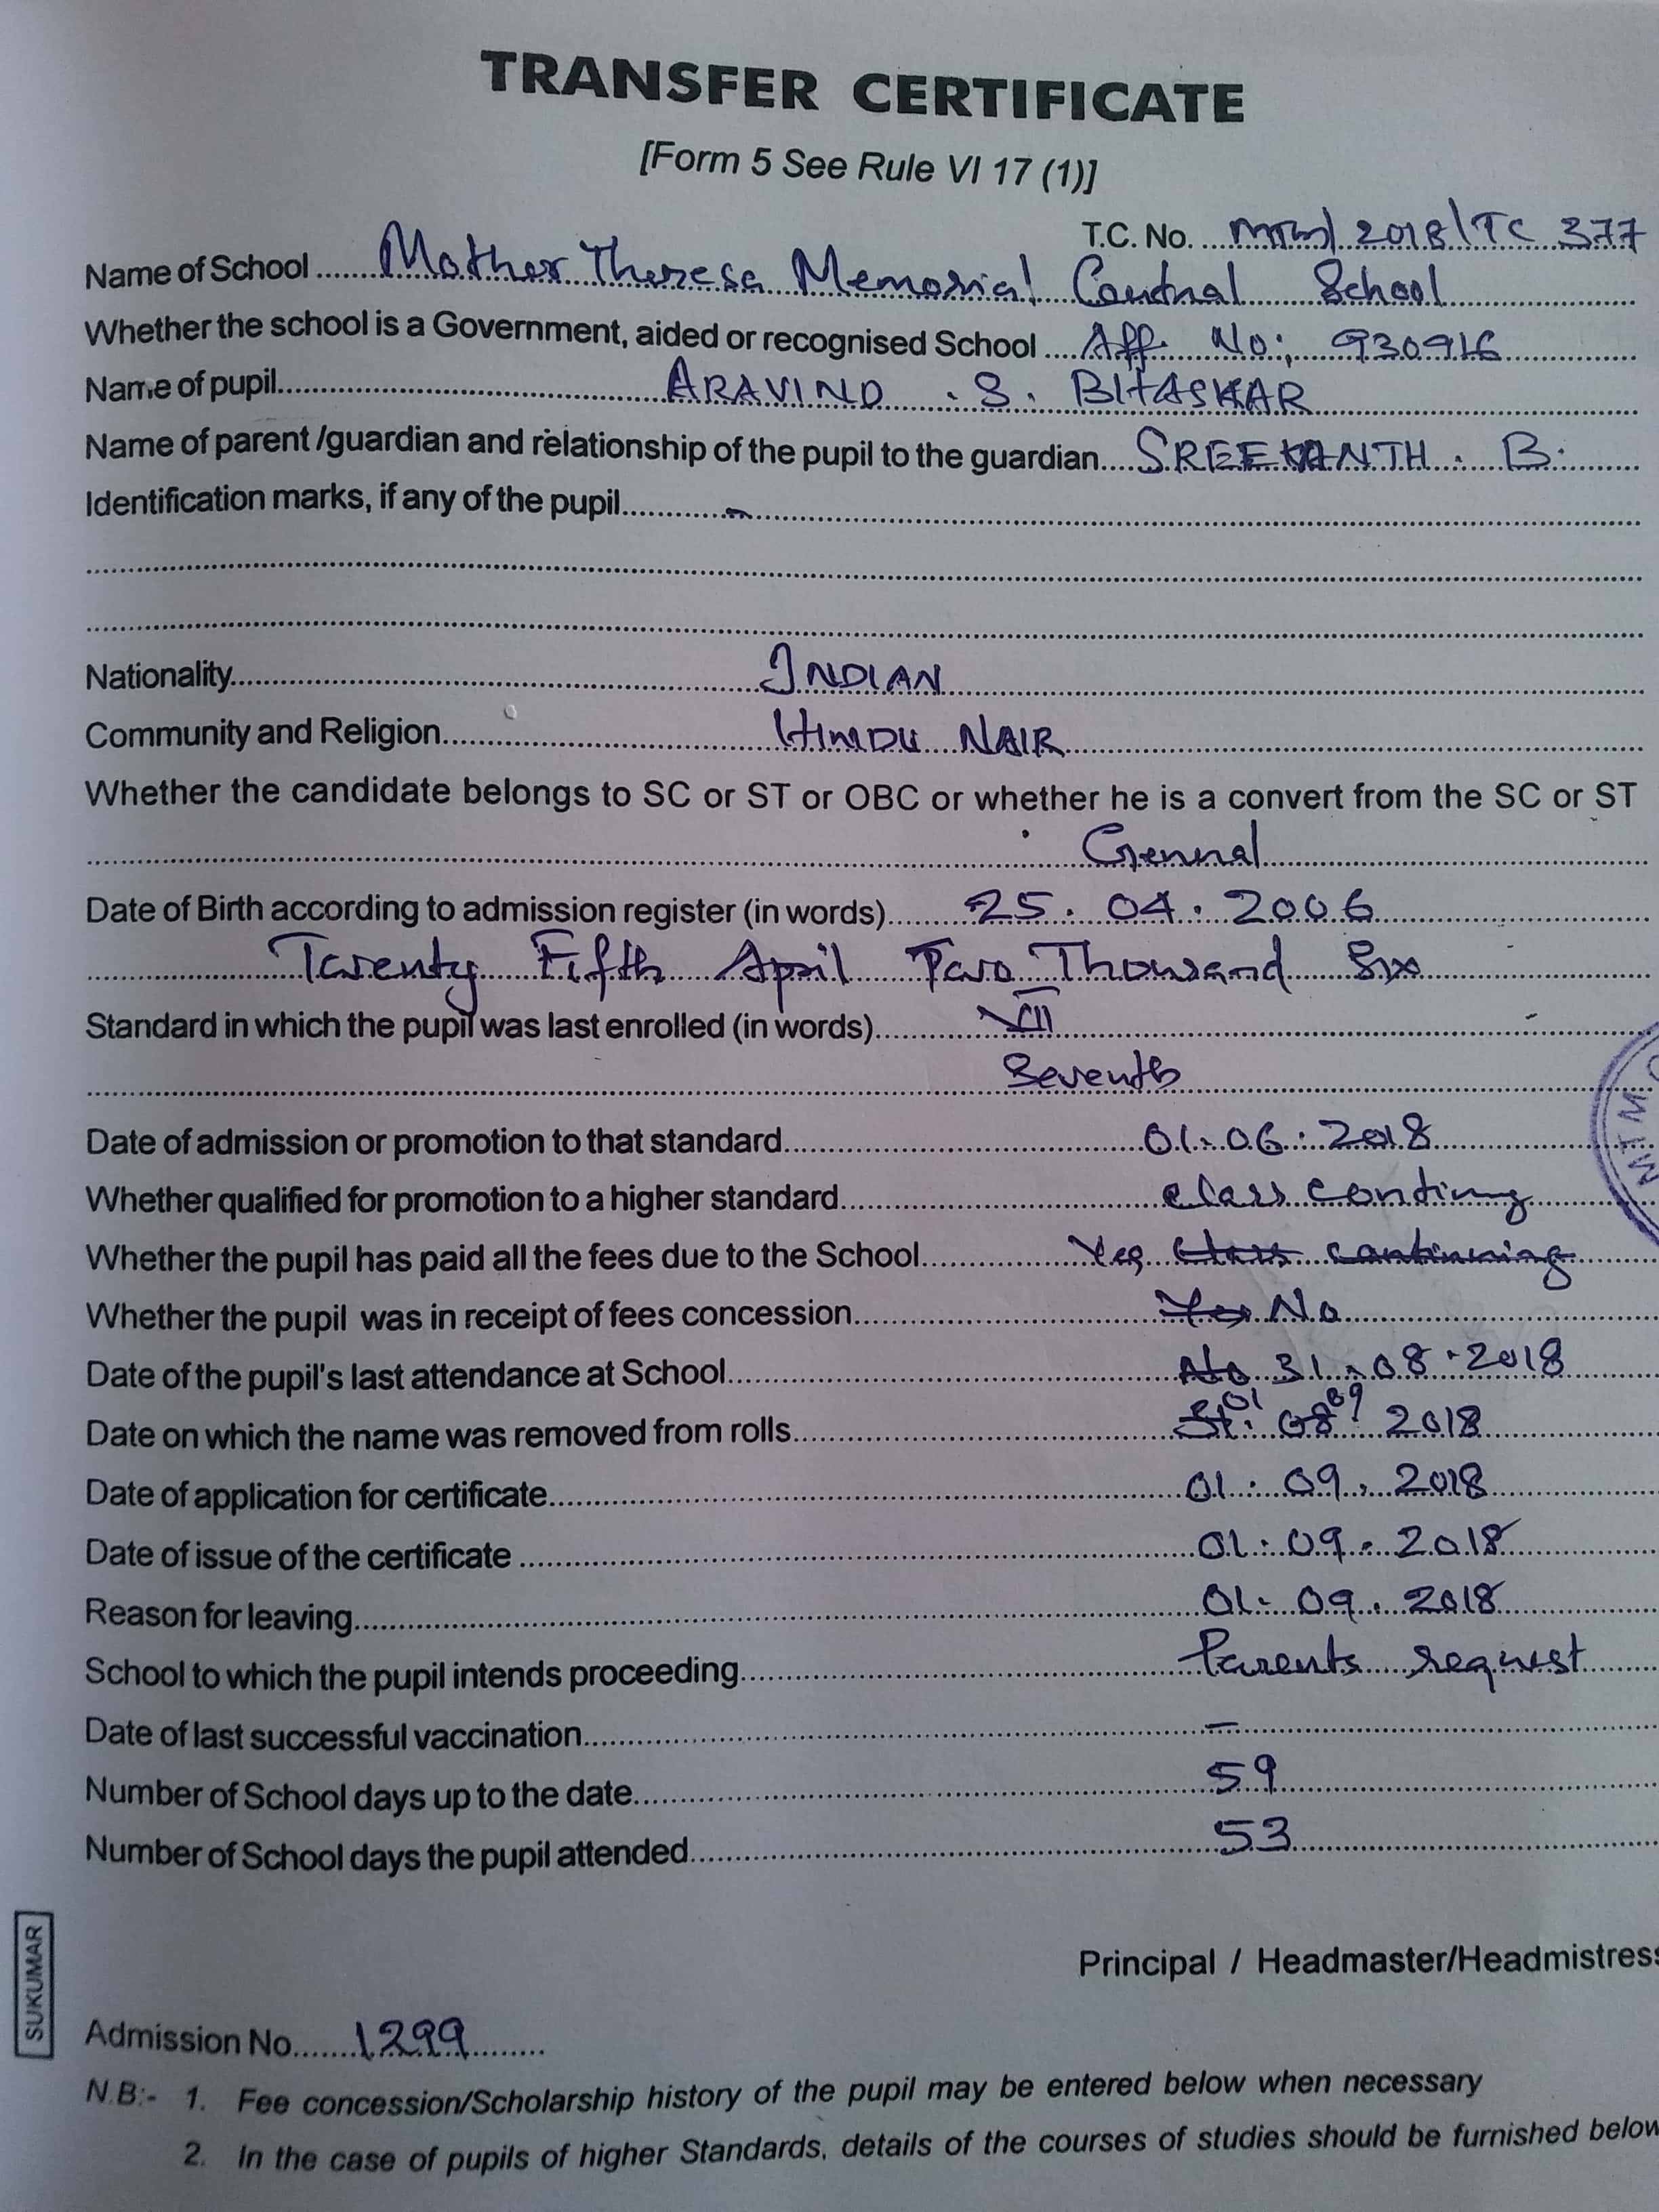 TRANSFER CERTIFICATE
[Form 5 See Rule VI 17 (1)]
T.C. No. .... 2018/TC 377
Name of School ...... Mother Theresa Memorial Central School
Whether the school is a Government, aided or recognised School .... Aff. No: 930916
Name of pupil...... ARAVIND . S. BHASKAR
Name of parent /guardian and relationship of the pupil to the guardian.... SREEKANTH . B.
Identification marks, if any of the pupil...... –
Nationality...... INDIAN
Community and Religion...... HINDU NAIR
Whether the candidate belongs to SC or ST or OBC or whether he is a convert from the SC or ST
General
Date of Birth according to admission register (in words)...... 25. 04. 2006
Twenty Fifth April Two Thousand Six
Standard in which the pupil was last enrolled (in words)...... VII
Seventh
Date of admission or promotion to that standard...... 01. 06. 2018
Whether qualified for promotion to a higher standard...... class
Whether the pupil has paid all the fees due to the School...... Yes class continuing
Whether the pupil was in receipt of fees concession...... Yes No
Date of the pupil's last attendance at School...... No 31. 08. 2018
Date on which the name was removed from rolls...... 31. 01 08. 09 2018
Date of application for certificate...... 01. 09. 2018
Date of issue of the certificate ...... 01. 09. 2018
Reason for leaving...... 01. 09. 2018
School to which the pupil intends proceeding...... Parents request
Date of last successful vaccination...... –
Number of School days up to the date...... 59
Number of School days the pupil attended...... 53
Principal / Headmaster/Headmistress
SUKUMAR
Admission No...... 1299
N.B:- 1. Fee concession/Scholarship history of the pupil may be entered below when necessary
2. In the case of pupils of higher Standards, details of the courses of studies should be furnished below